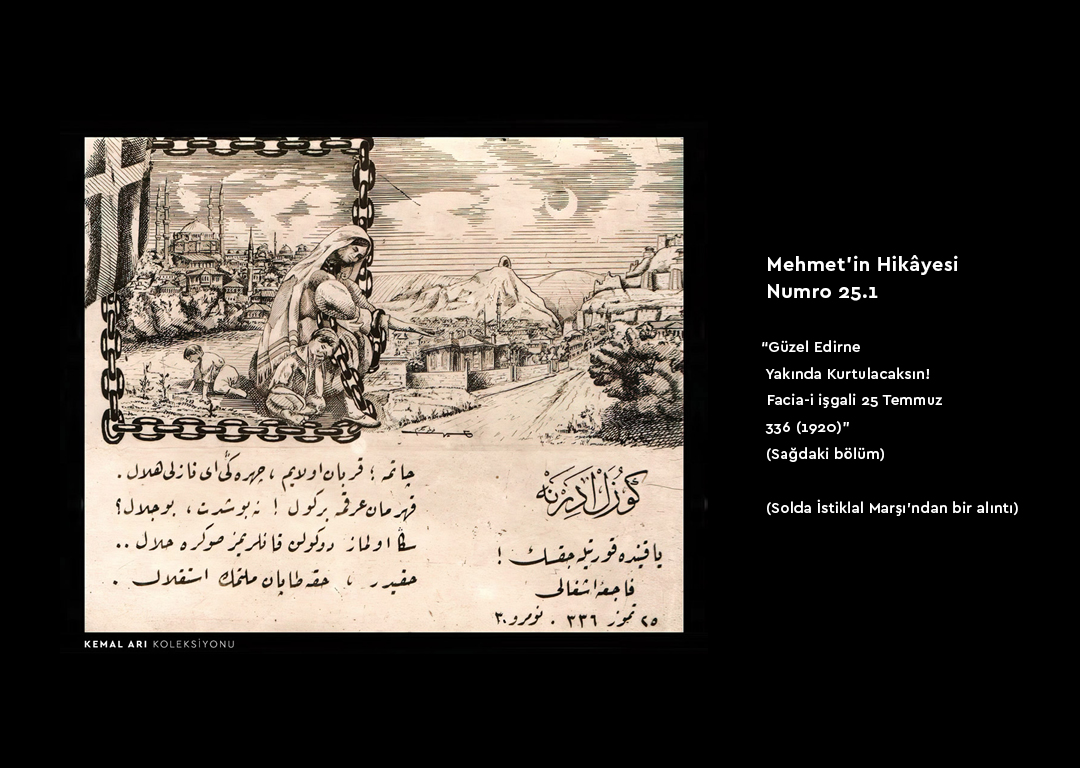 چاتمه ؛ قربان اولایم ، چهره‌ڭی ای نازلی هلال .
قهرمان عرقمه بر كول ! نه بو شدت ، بو جلال ؟
سڭا اولماز دوكولن قانلریمز صوكره حلال ..
حقیدر ، حقه طاپان ملتمك استقلال .
كوزل ادرنه
یاقینده قورتیله‌جقسك !
فاجعهٔ اشغالی
٢٥ تموز ٣٣٦ . نومرو ٣٠
KEMAL ARI KOLEKSİYONU
Mehmet'in Hikâyesi
Numro 25.1
“Güzel Edirne
Yakında Kurtulacaksın!
Facia-i işgali 25 Temmuz
336 (1920)”
(Sağdaki bölüm)
(Solda İstiklal Marşı'ndan bir alıntı)